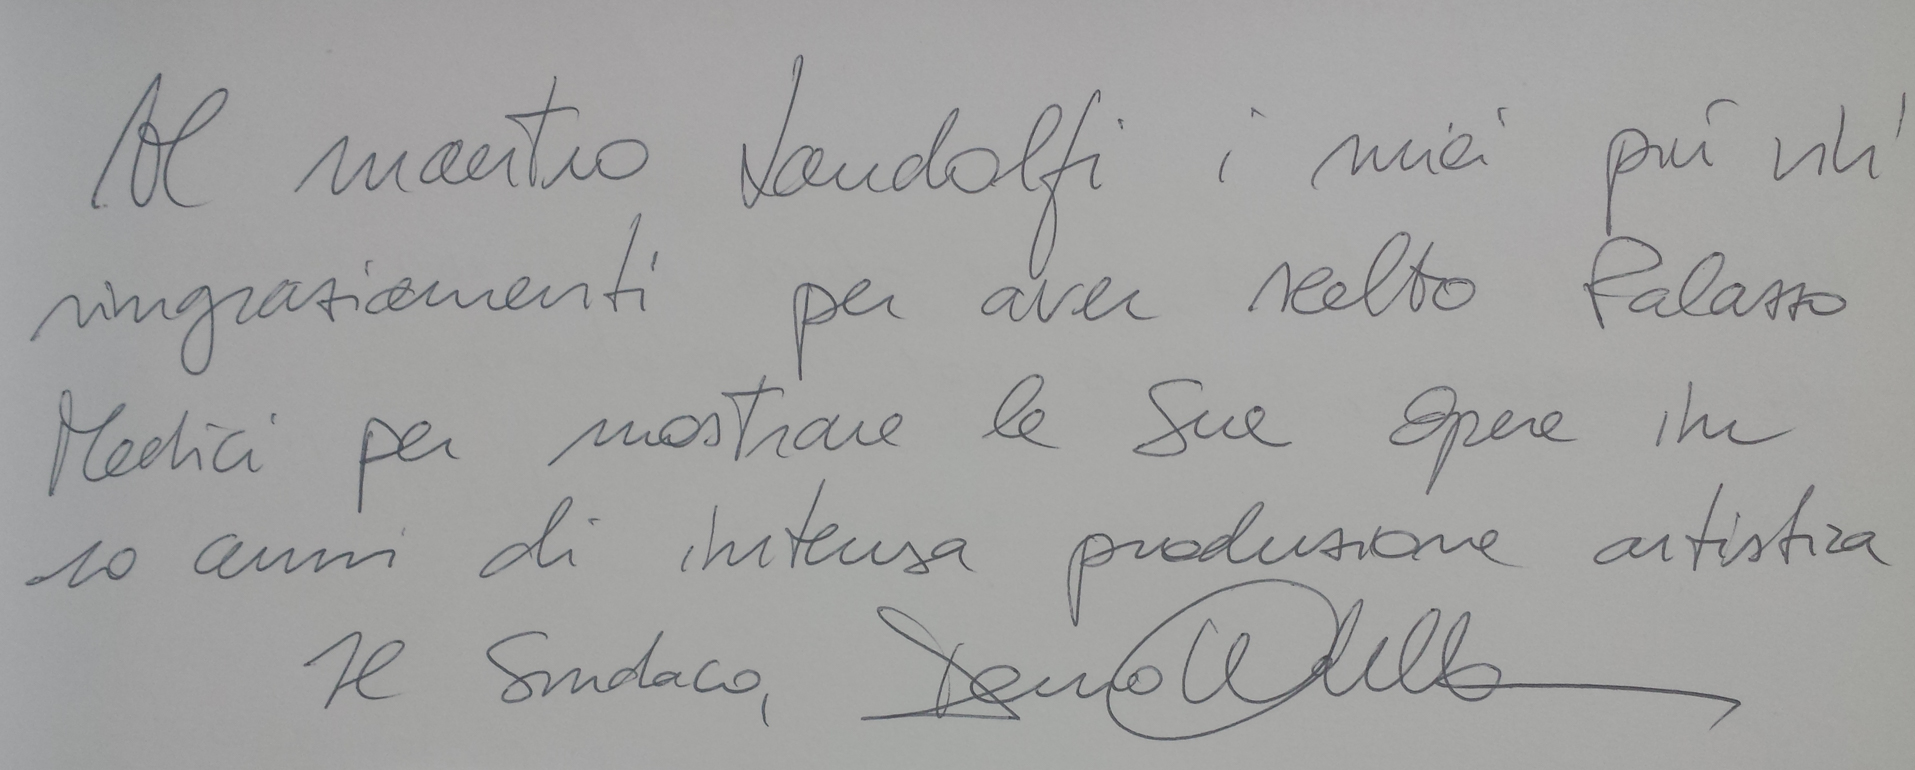 Al maestro Landolfi i miei più vivi
ringraziamenti per aver scelto Palazzo
Medici per mostrare le Sue opere in
10 anni di intensa produzione artistica
Il Sindaco,